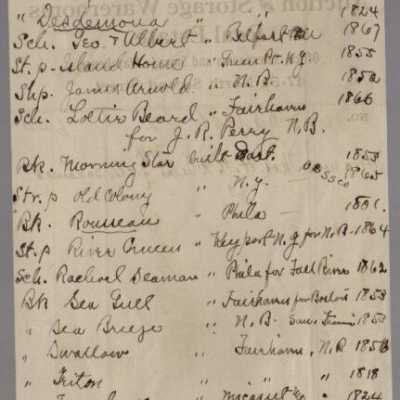 " Desdemona " " 1824
Sch. Geo. & Albert " Belfast Me 1867
St. p Island Home " Green Pt. N.Y. 1855
Shp. James Arnold " N.B. 1852
Sch. Lottie Beard " Fairhaven 1866
for J. R. Perry N.B.
Bk. Morning Star built Dart. 1853
Str. p Old Colony " N.Y. 1865
Bk. Rousseau " Phila 1801
St. p River Queen " Keyport N.J. for N.B. 1864
Sch. Rachael Seaman " Phila for Fall River 1862
Bk Sea Gull " Fairhaven for Boston 1853
" Sea Breeze " N.B. San Francis 1853
" Swallow " Fairhaven, N.B. 1856
" Triton " " 1818
1824